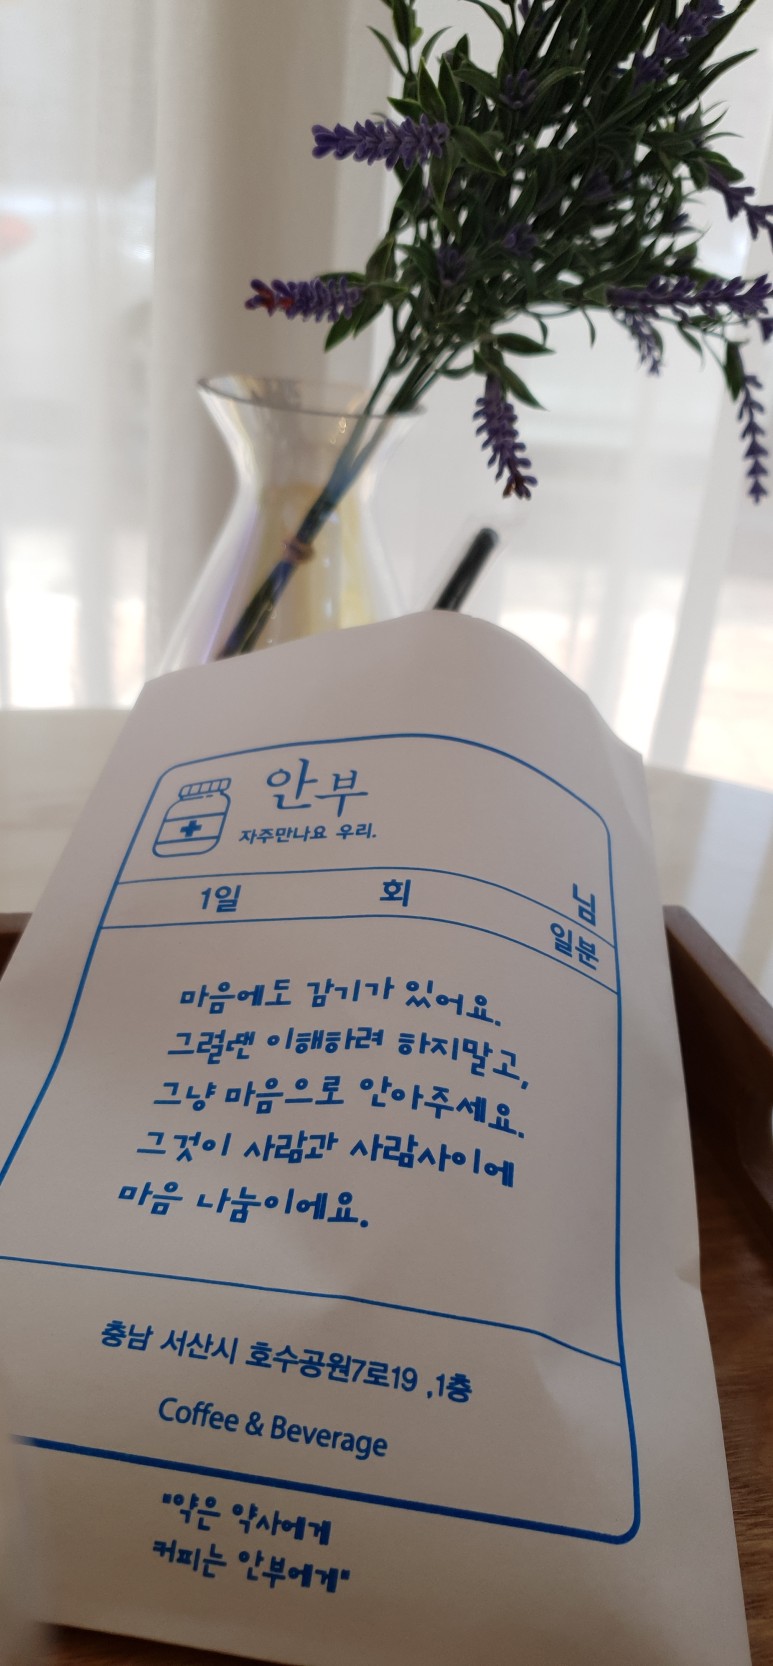 안부
자주만나요 우리.
님
1일 회 일분
마음에도 감기가 있어요.
그럴땐 이해하려 하지말고,
그냥 마음으로 안아주세요.
그것이 사람과 사람사이에
마음 나눔이에요.
충남 서산시 호수공원7로19 ,1층
Coffee & Beverage
"약은 약사에게
커피는 안부에게"